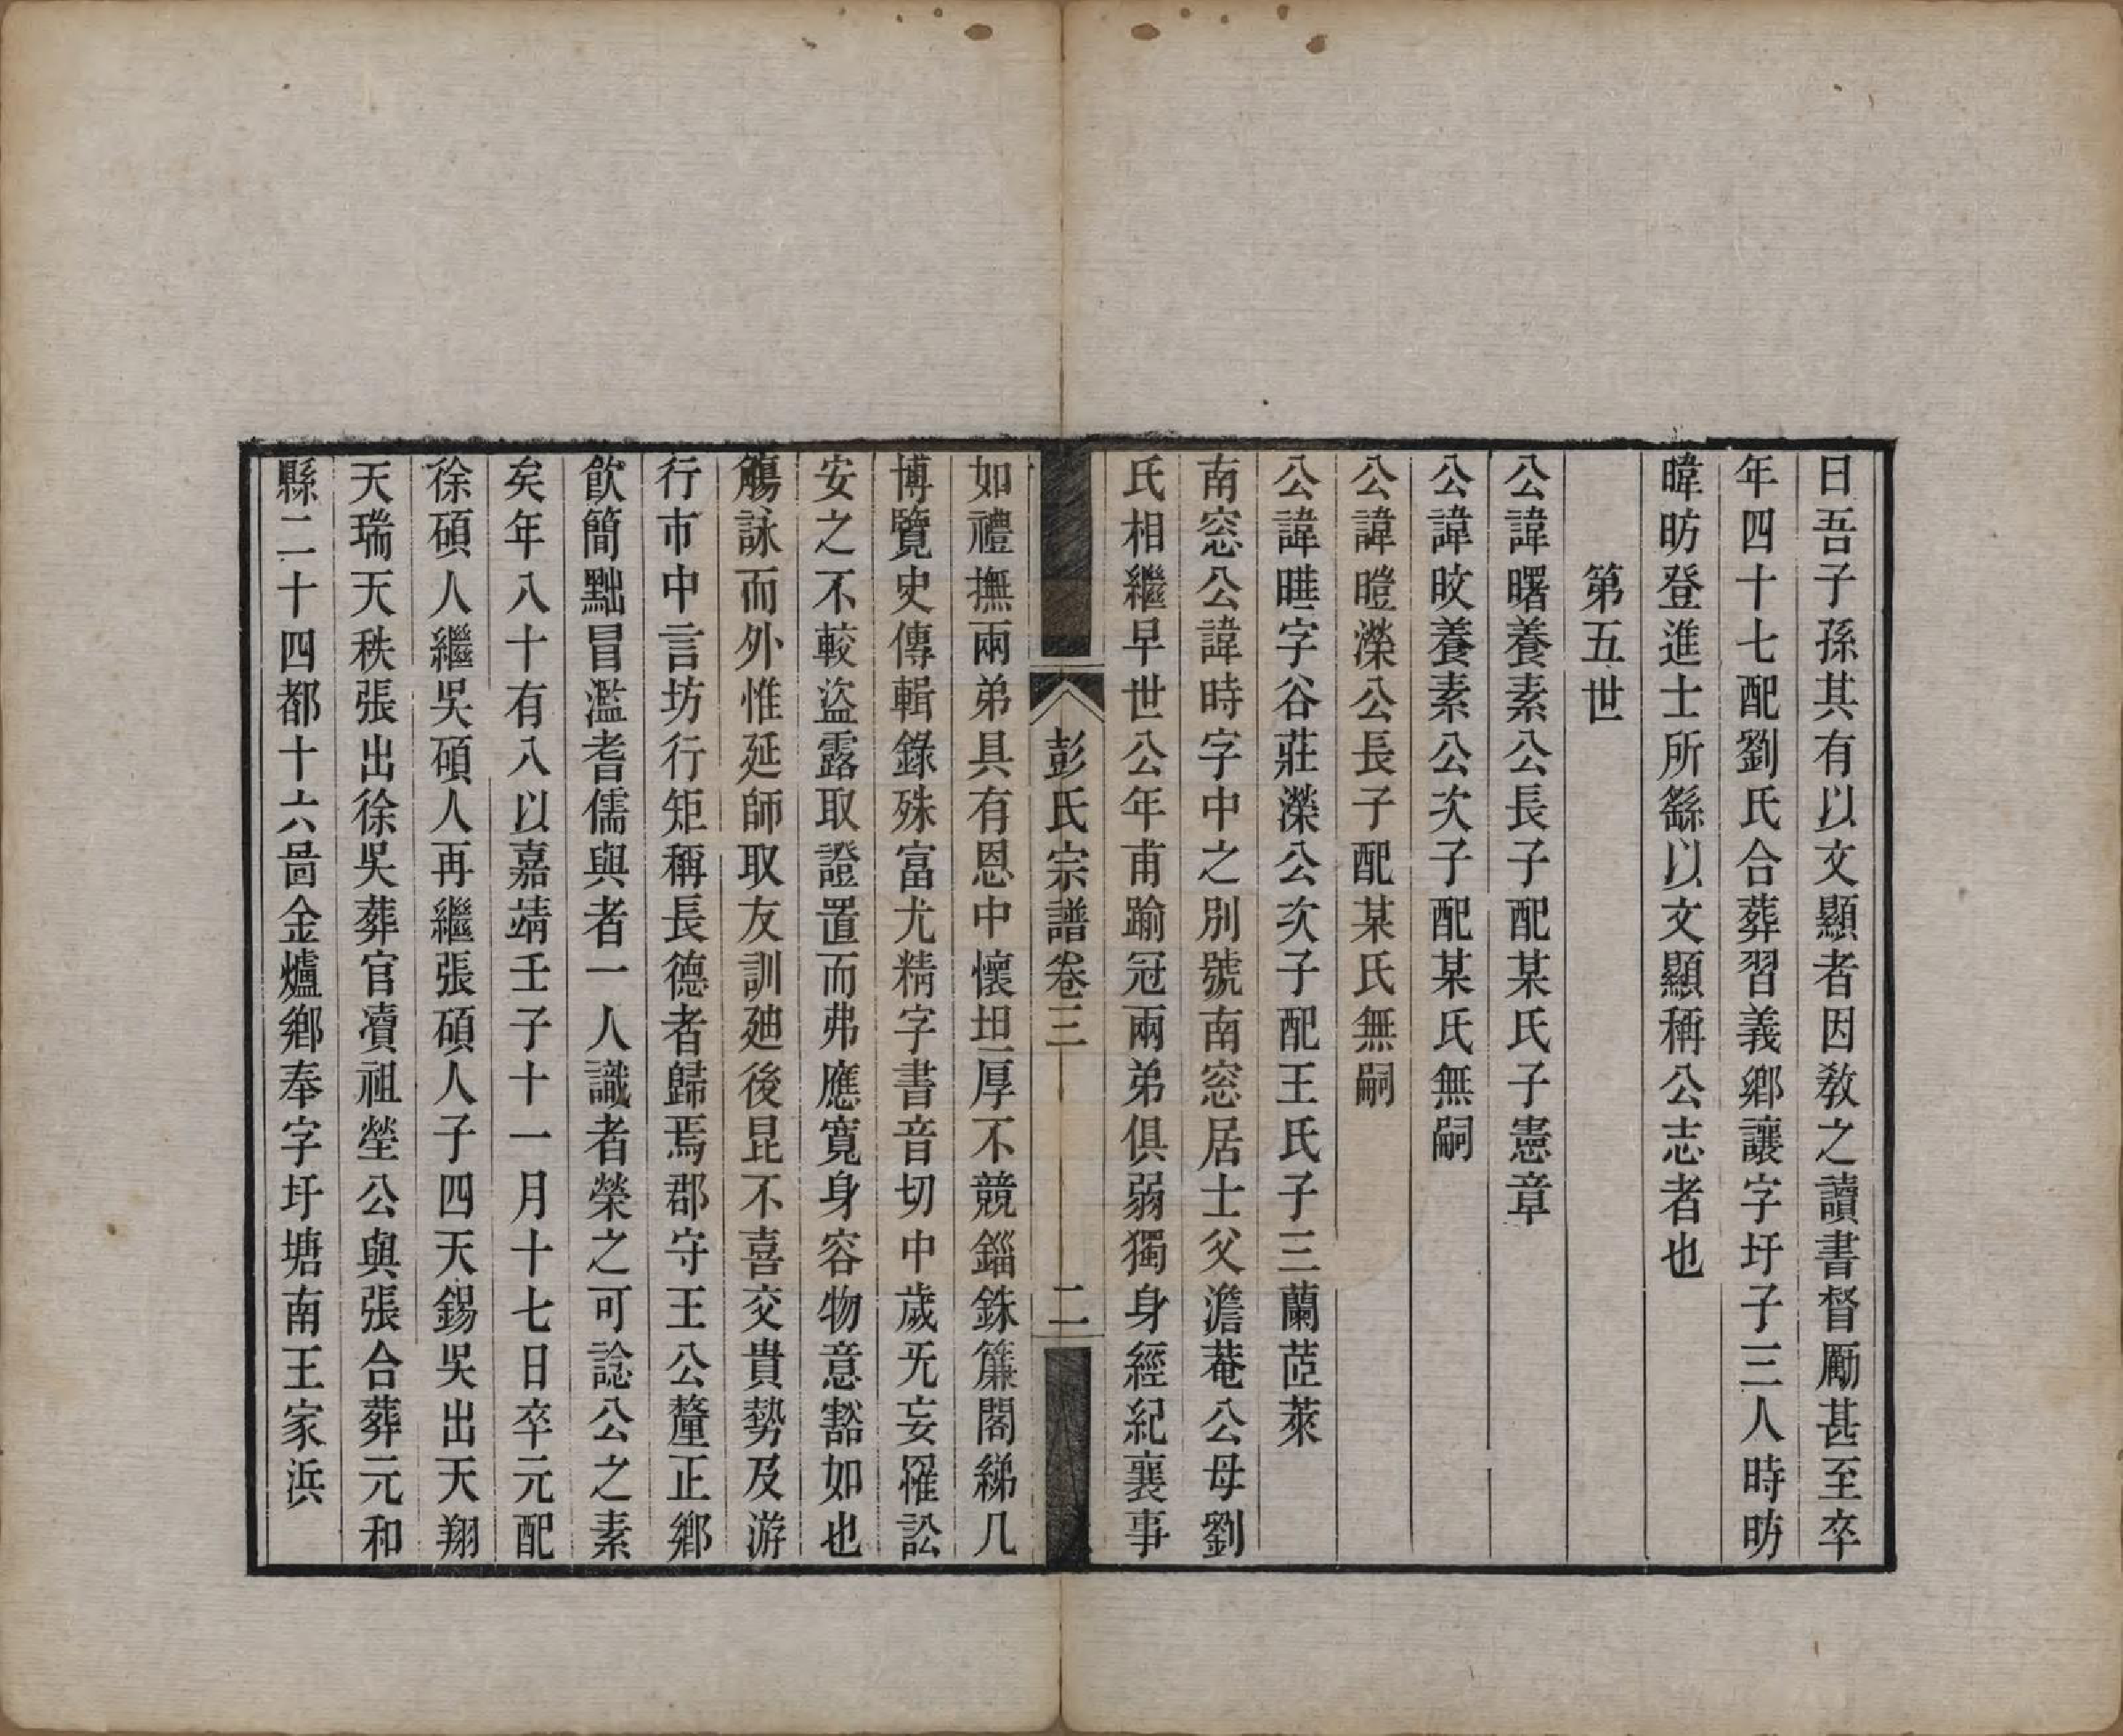 曰吾子孫其有以文顯者因敎之讀書督勵甚至卒
年四十七配劉氏合葬習義鄉讓字圩子三人時昉
暐昉登進士所繇以文顯稱公志者也
第五世
公諱曙養素公長子配某氏子憲章
公諱旼養素公次子配某氏無嗣
公諱暟濚公長子配某氏無嗣
公諱暀字谷莊濚公次子配王氏子三蘭茝萊
南窓公諱時字中之別號南窓居士父澹菴公母劉
氏相繼早世公年甫踰冠兩弟俱弱獨身經紀襄事
彭氏宗譜卷三
二
如禮撫兩弟具有恩中懷坦厚不競錙銖簾閣綈几
博覽史傳輯錄殊富尤精字書音切中歲旡妄罹訟
安之不較盜露取證置而弗應寬身容物意豁如也
觴詠而外惟延師取友訓廸後昆不喜交貴勢及游
行市中言坊行矩稱長德者歸焉郡守王公釐正鄉
飮簡黜冒濫耆儒與者一人識者榮之可諗公之素
矣年八十有八以嘉靖壬子十一月十七日卒元配
徐碩人繼吳碩人再繼張碩人子四天錫吳出天翔
天瑞天秩張出徐吳葬官瀆祖塋公與張合葬元和
縣二十四都十六啚金爐鄉奉字圩塘南王家浜